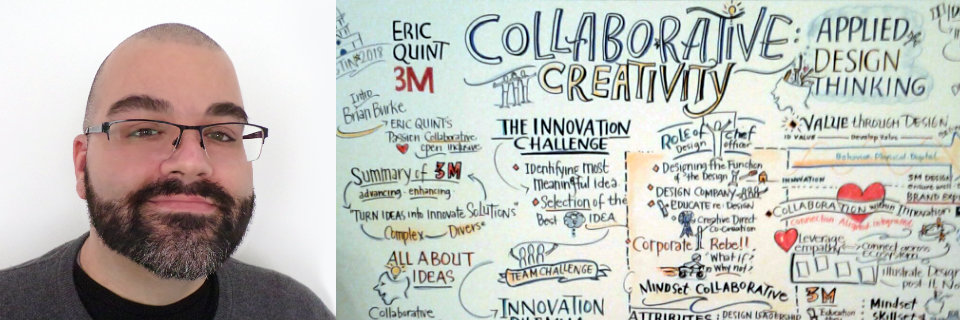 2018
ERIC
QUINT
3M
COLLABORATIVE:
CREATIVITY
APPLIED
DESIGN
THINKING
Intro
Brian Burke
ERIC QUINT'S
Passion Collaborative
open inclusive
Summary of 3M
advancing - enhancing
"TURN IDEAS into innovate SOLUTIONS"
Complex Diverse
ALL ABOUT
IDEAS
Collaborative
THE INNOVATION
CHALLENGE
Identifying most
Meaningful idea
Selection of the
Best IDEA
TEAM CHALLENGE
INNOVATION
Role of Chief
Design officer
Designing the Function
of the Design
DESIGN COMPANY
EDUCATE re: DESIGN
Creative Direct
Co-creation
Corporate Rebel!
"What if?
Why not?"
MINDSET COLLABORATIVE
ATTRIBUTES: DESIGN LEADERSHIP
VALUE through DESIGN
ID VALUE Develop Value
Behavior Physical Digital
INNOVATION
3M DESIGN
BRAND
COLLABORATION within Innovation
Connection
Leverage
empathy connect across
ECOSYSTEM
illustrate Design
post it
3M
Education
Mindset
skillset